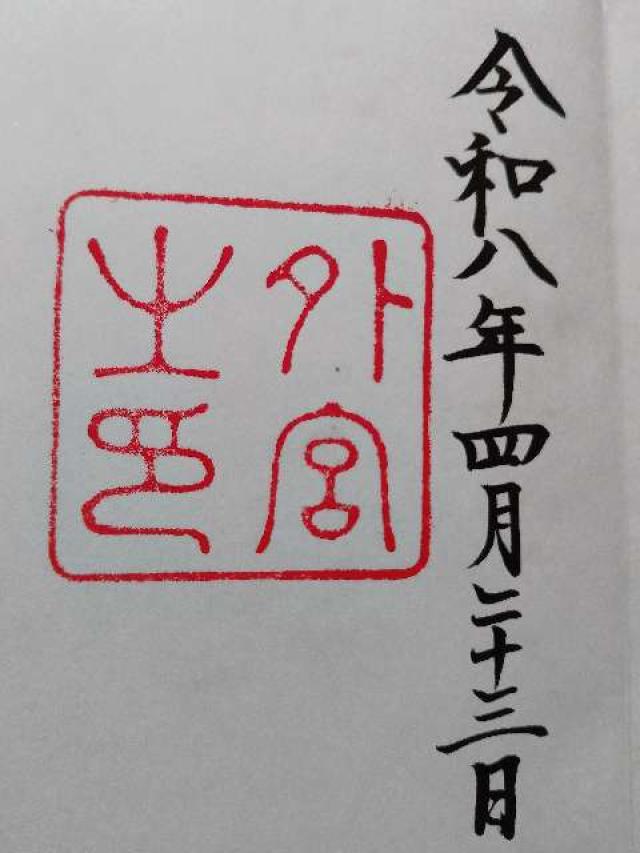 令和八年四月二十三日
外宮
之印